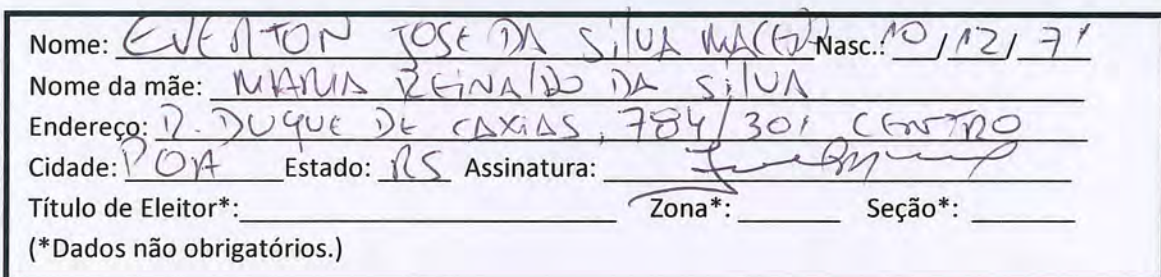 Nome: EVERTON JOSE DA SILVA MACEDO Nasc.: 10/12/71
Nome da mãe: MARIA REINALDO DA SILVA
Endereço: R. DUQUE DE CAXIAS, 784/301 CENTRO
Cidade: POA Estado: RS Assinatura:
Título de Eleitor*: Zona*: Seção*:
(*Dados não obrigatórios.)